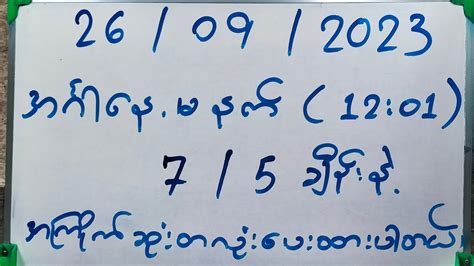 26 / 09 / 2023
အင်္ဂါနေ့ . မနက် ( 12:01 )
7 / 5 ချိန်းနဲ့
အကြိုက်ဆုံးတလုံးပေးထားပါတယ်